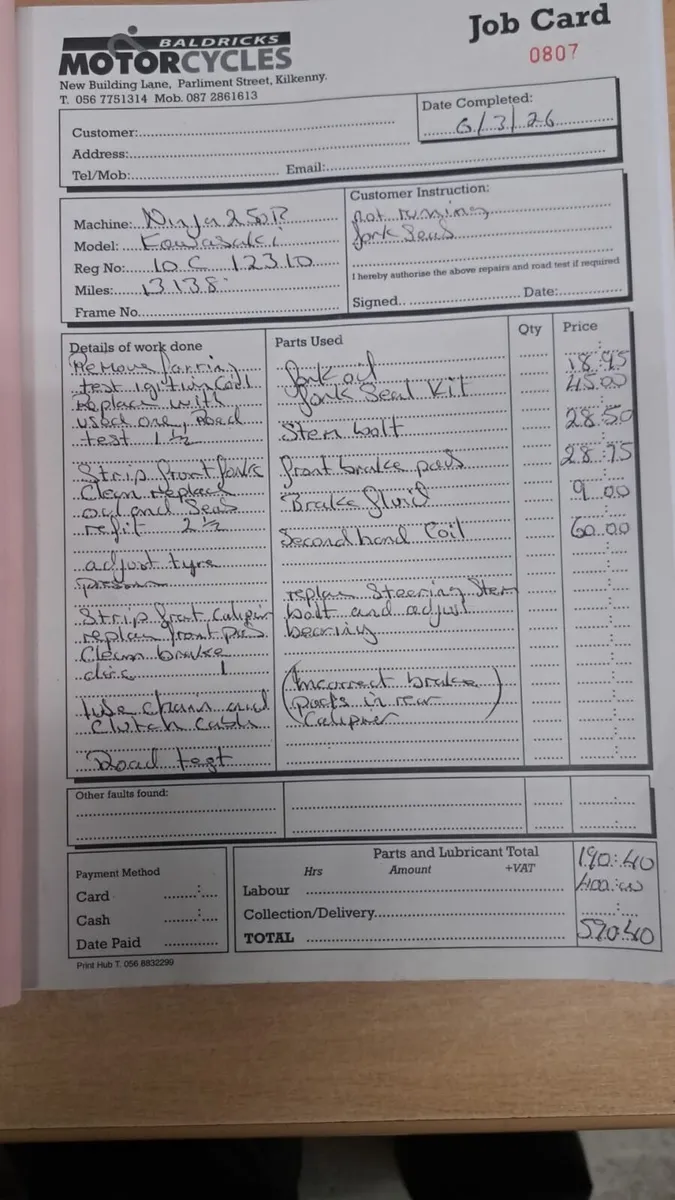 BALDRICKS
MOTORCYCLES
New Building Lane, Parliment Street, Kilkenny.
T. 056 7751314 Mob. 087 2861613
Job Card
0807
Customer:
Address:
Tel/Mob: Email:
Date Completed:
6/3/26
Machine: Ninja 250R
Model: Kawasaki
Reg No: 10 C 12310
Miles: 13138
Frame No.
Customer Instruction:
not running
fork seas
I hereby authorise the above repairs and road test if required
Signed.. Date:
Details of work done
Remove farring
test igition coil
replace with
used one, Road
test 1 ½
Strip front forks
Clean replace
oil and Seas
refit 2 ½
adjust tyre
Strip front caliper
replace front pads
Clean brake
disc 1
lube chain and
Clutch cable
Road test
Parts Used Qty Price
fork oil 18.95
fork Seal Kit 45.00
Stem bolt 28.50
front brake pads 28.95
Brake fluid 9.00
Second hand Coil 60.00
replace Steering Stem
bolt and adjust
bearing
(Incorrect brake
parts in rear
Caliper)
Other faults found:
Payment Method
Card
Cash
Date Paid
Parts and Lubricant Total 190:40
Hrs Amount +VAT
Labour 400:00
Collection/Delivery
TOTAL 590:40
Print Hub T. 056 8832299